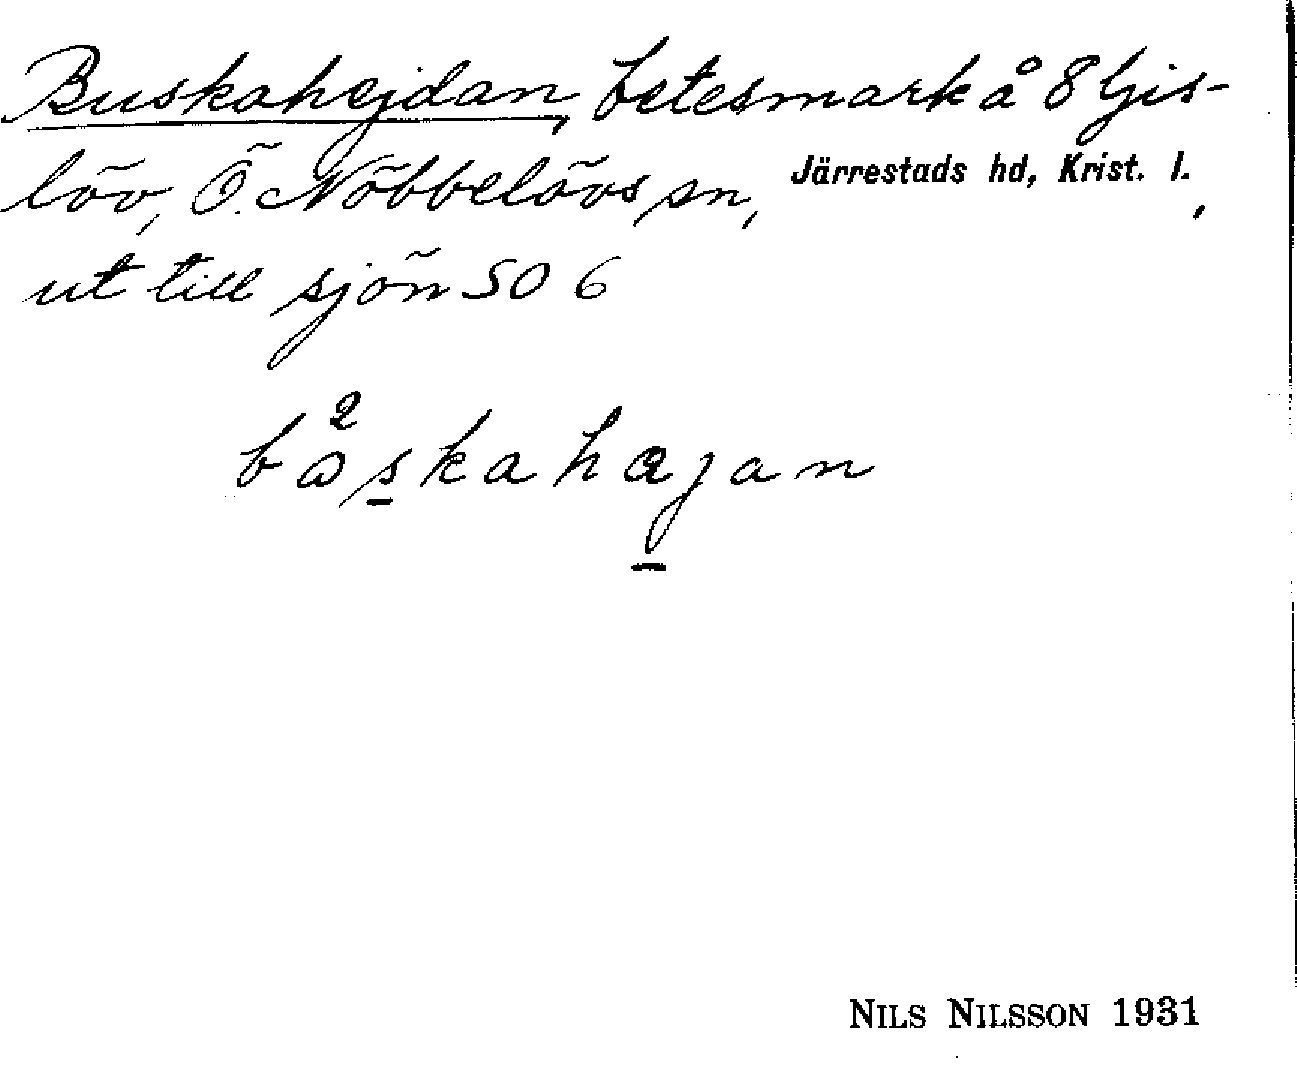 Buskahejdan, betesmark å 8 Gjis-
löv, Ö. Nöbbelövs sn, Järrestads hd, Krist. l.,
ut till sjön SO 6
båskahajan
NILS NILSSON 1931